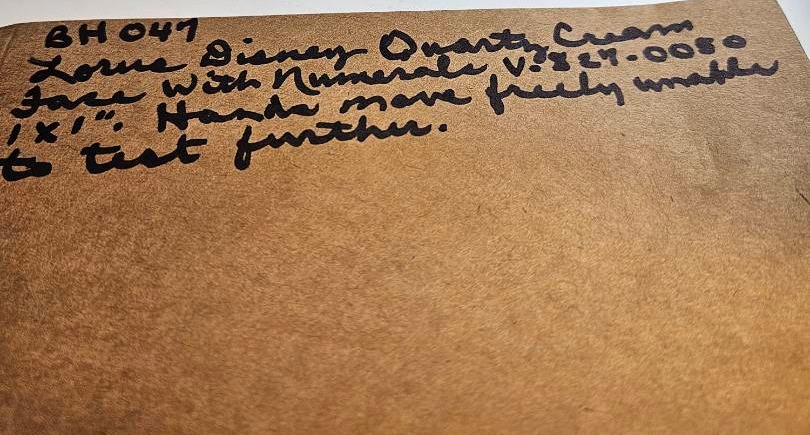 BH 047
Lorus Disney Quartz Cream
Face With Numerals V.827-0080
1x1". Hands move freely unable
to test further.